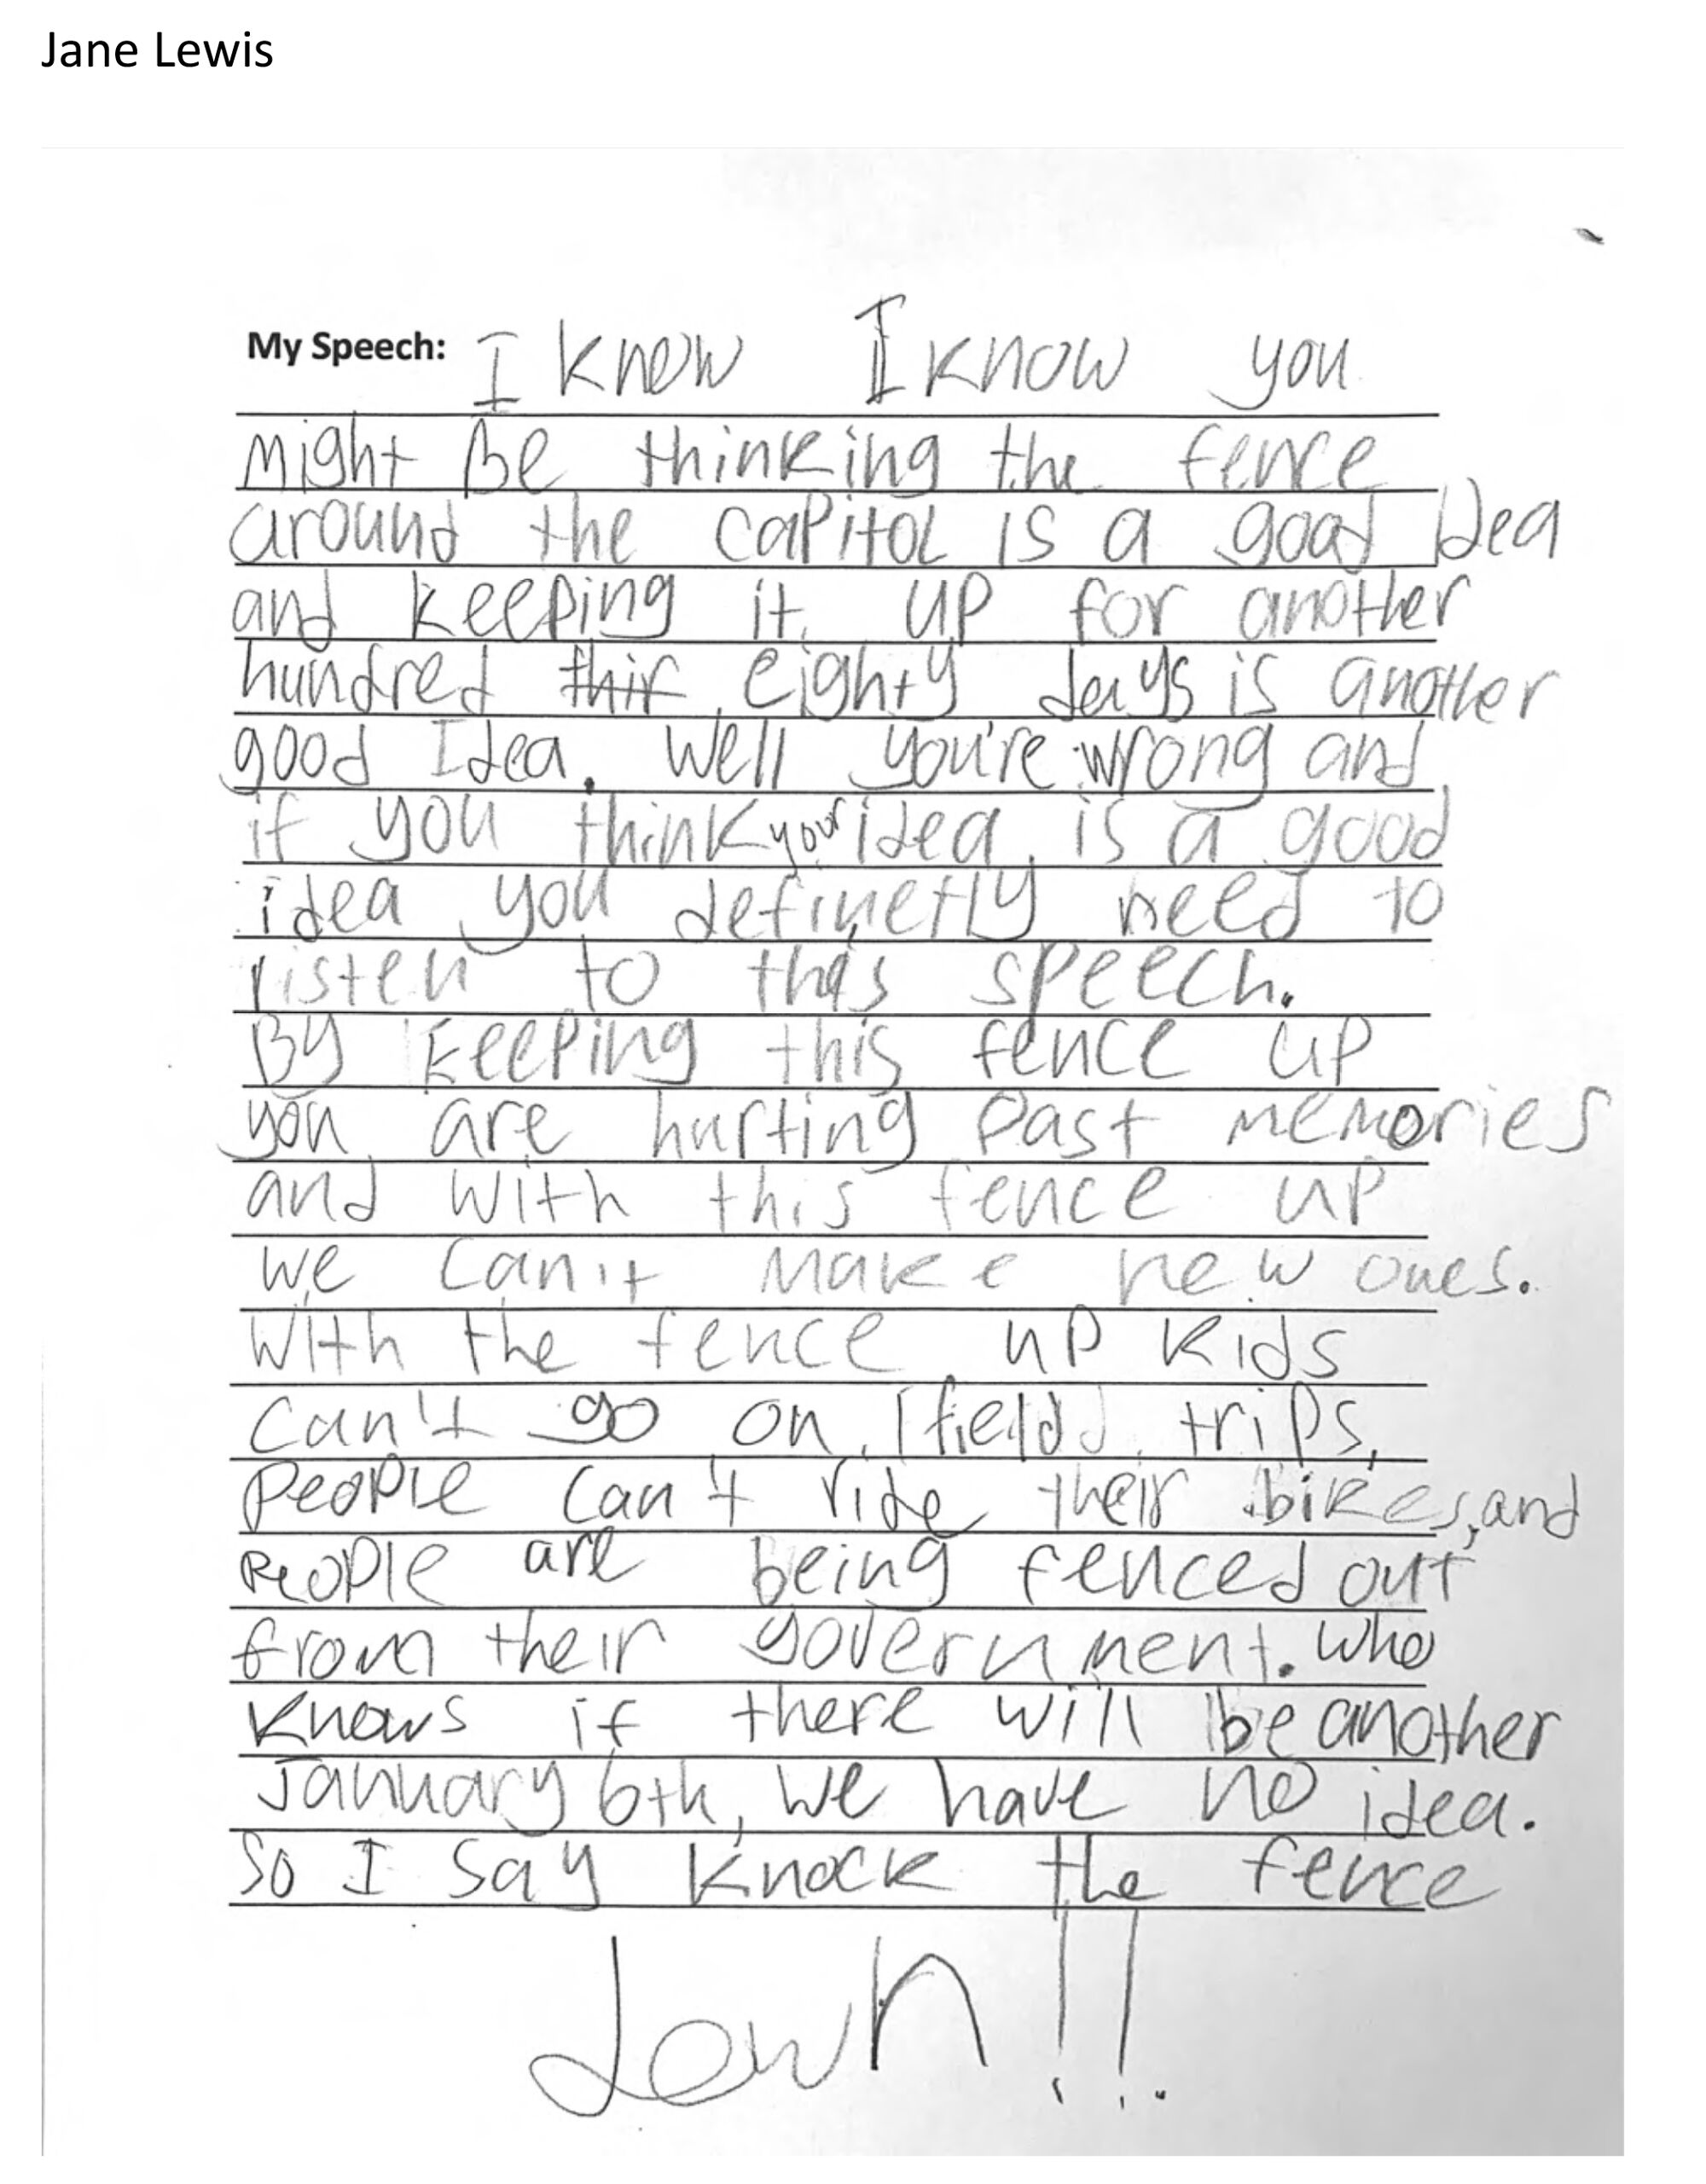 Jane Lewis
My Speech: I know I know you
might Be thinking the fence
around the capitol is a good Idea
and keeping it up for another
hundred thir eighty days is another
good Idea. Well you're wrong and
if you think your idea is a good
idea you definetly need to
listen to this speech.
By keeping this fence up
you are hurting past memories
and with this fence up
we can't make new ones.
With the fence up kids
can't go on field trips,
people can't ride their bikes, and
people are being fenced out
from their government. who
knows if there will be another
January 6th, we have no idea.
So I say knock the fence
down!!